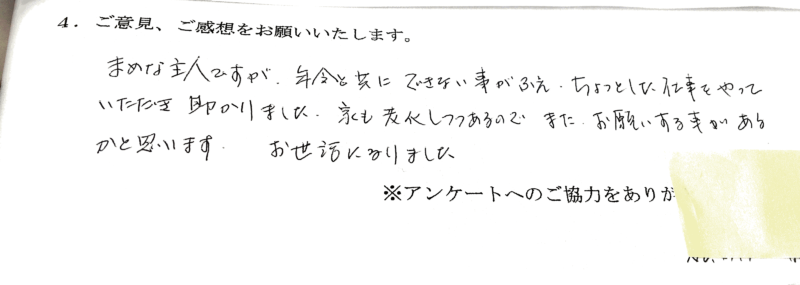 4. ご意見、ご感想をお願いいたします。
まめな主人ですが、年令と共に できない事がふえ、ちょっとした仕事をやって
いただき 助かりました。家も老化しつつあるので また、お願いする事がある
かと思います。 お世話になりました
※アンケートへのご協力をありが